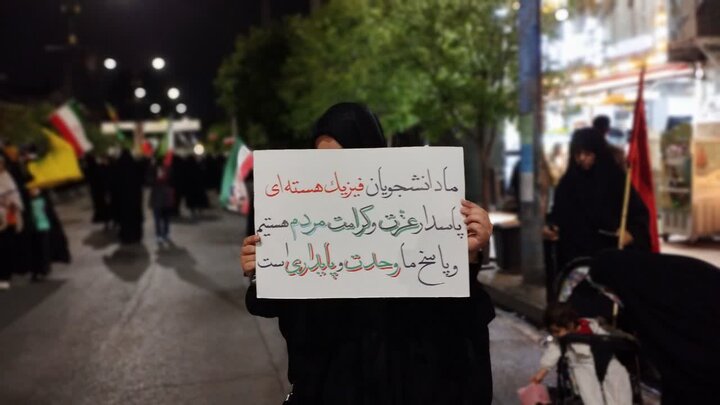 ما دانشجویان فیزیک هسته‌ای
پاسدار عزت و کرامت مردم هستیم
و پاسخ ما وحدت و پایداری است